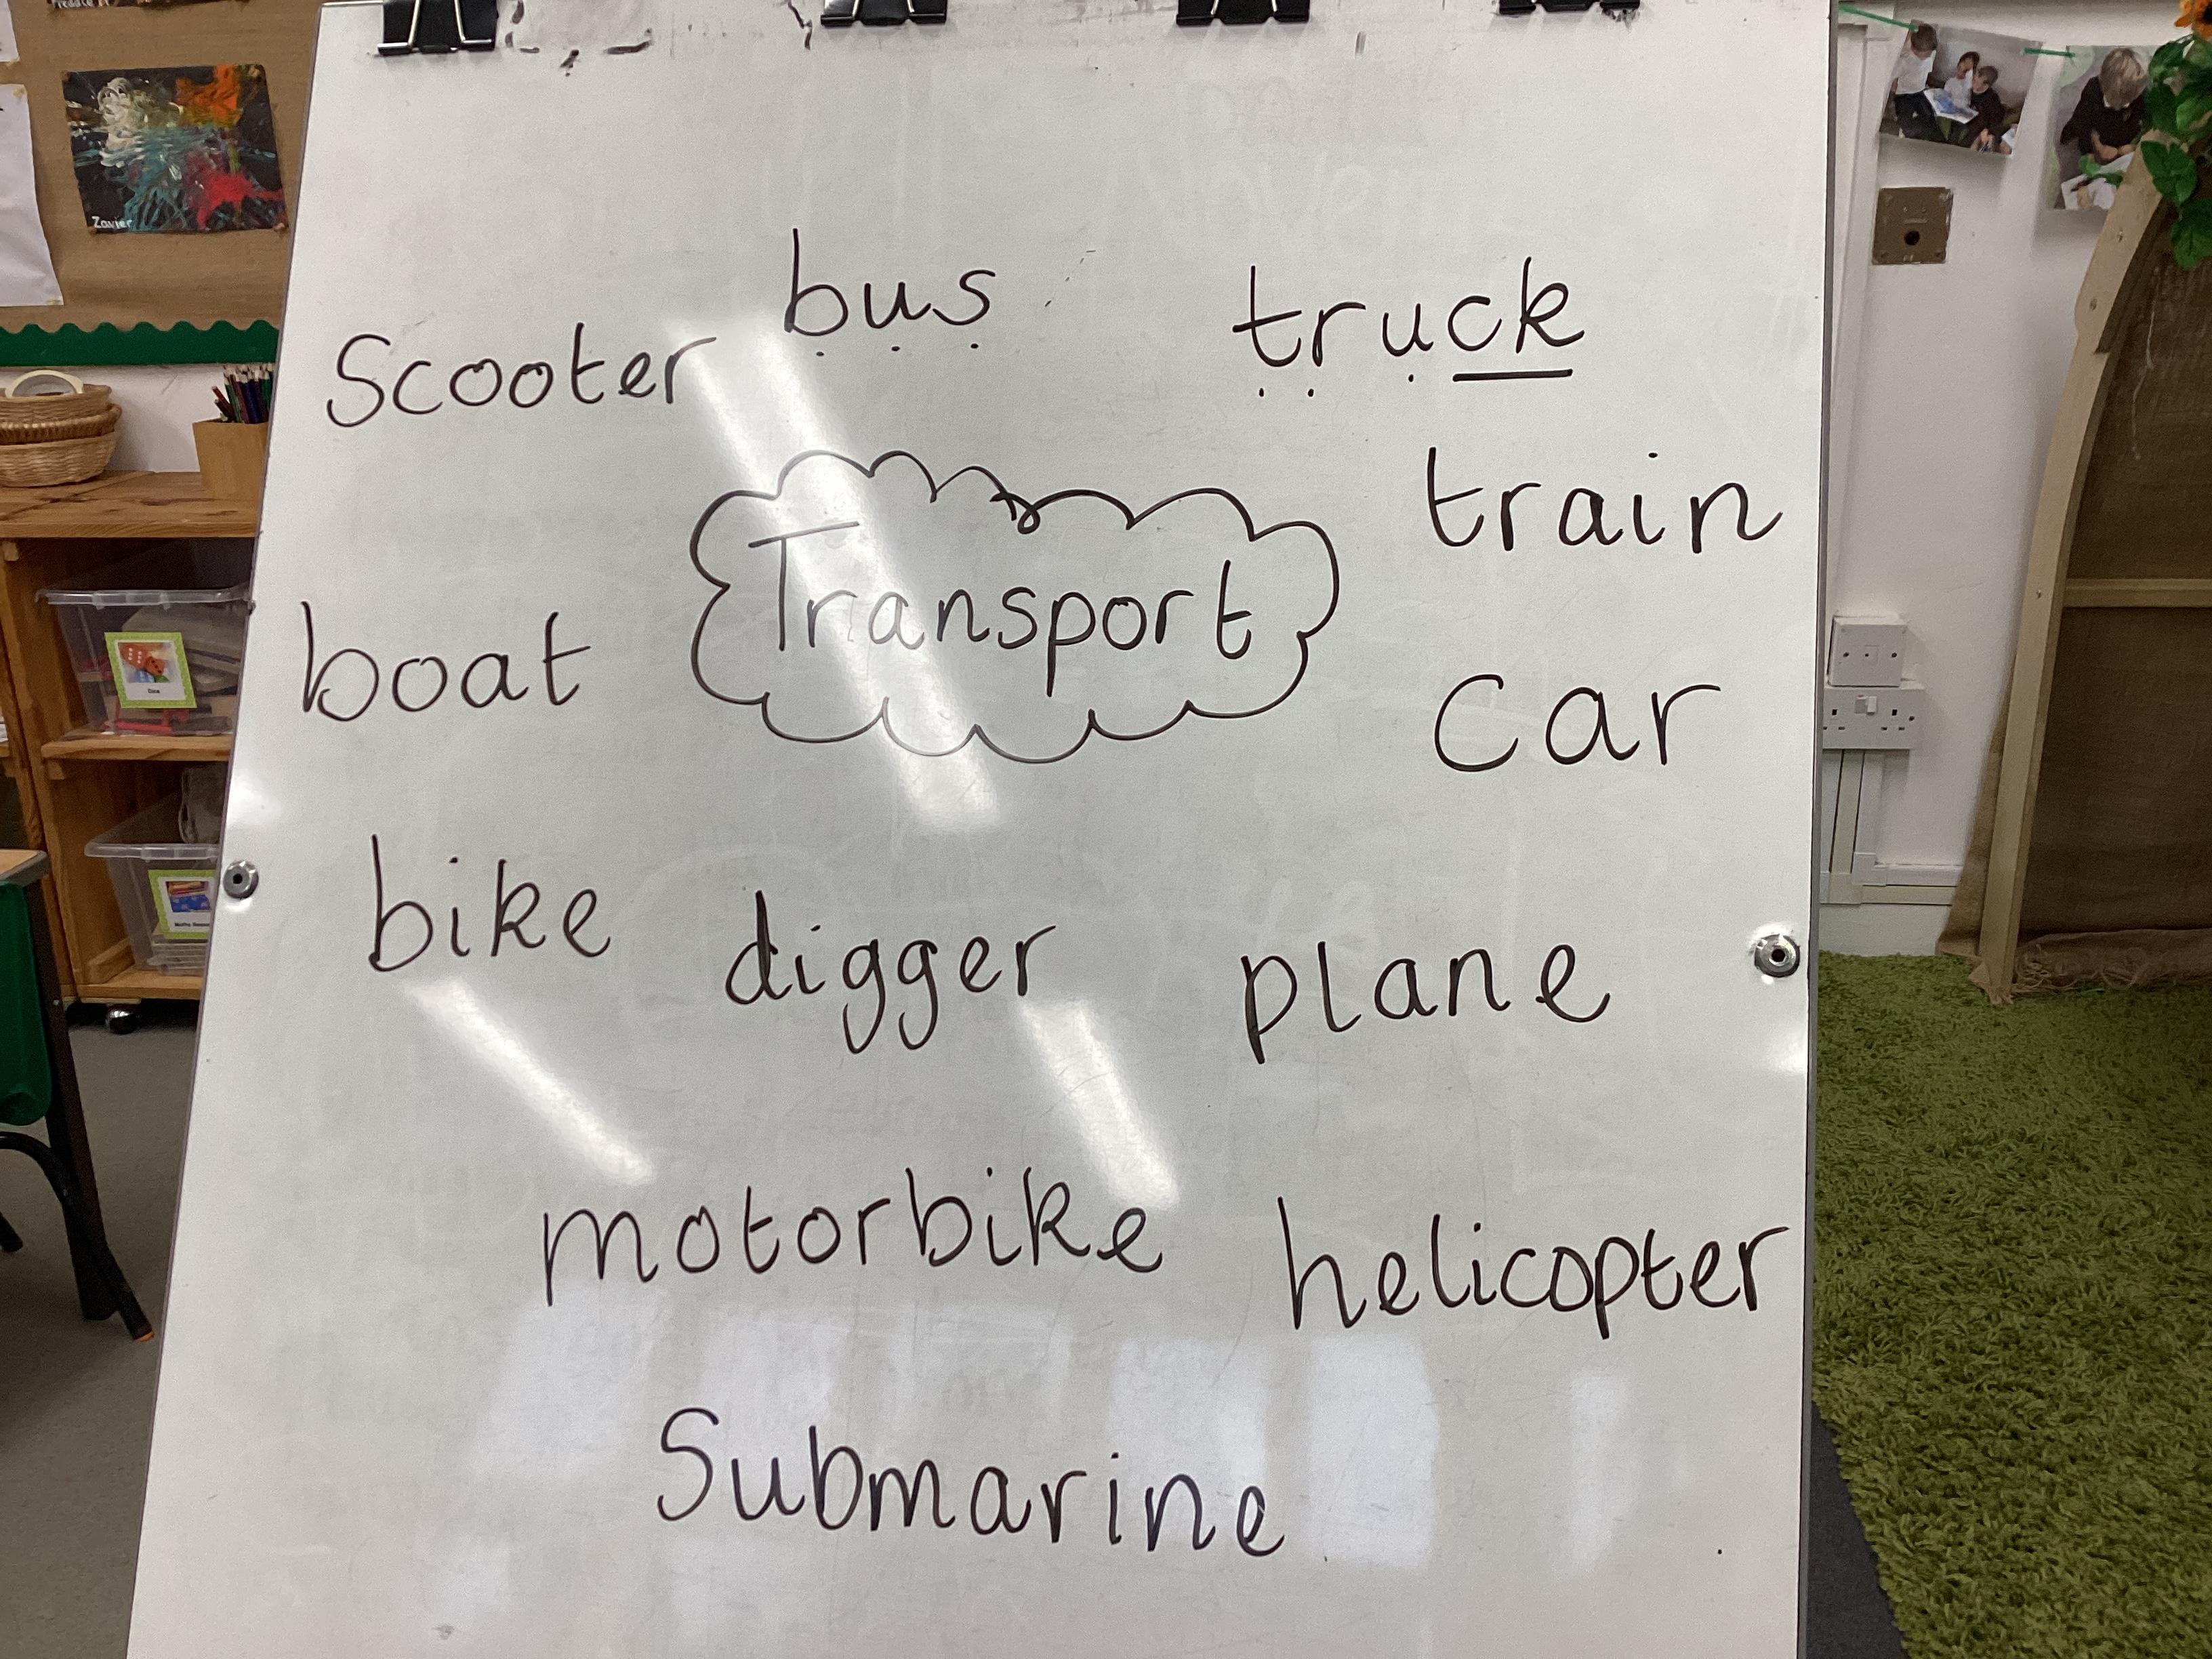 Zavier
bus
truck
Scooter
train
Transport
boat
car
bike
digger
plane
motorbike
helicopter
Submarine